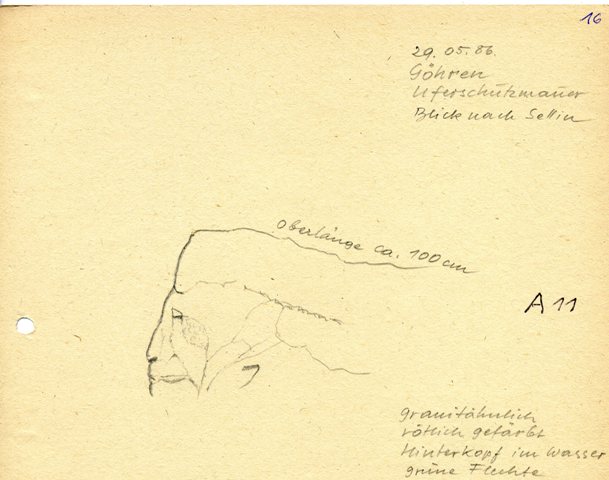 16
29.05.86.
Göhren
Uferschutzmauer
Blick nach Sellin
Oberlänge ca. 100 cm
A 11
granitähnlich
rötlich gefärbt
Hinterkopf im Wasser
grüne Flechte